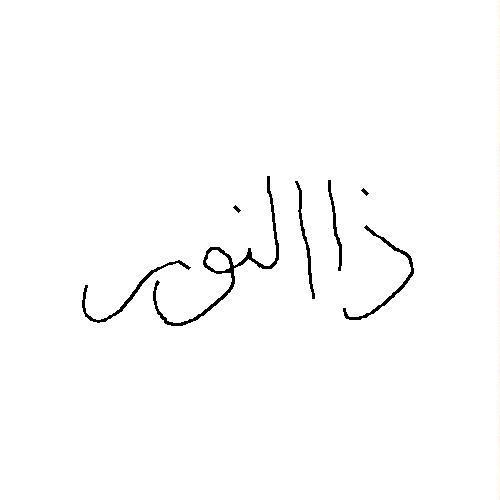 ذا النور